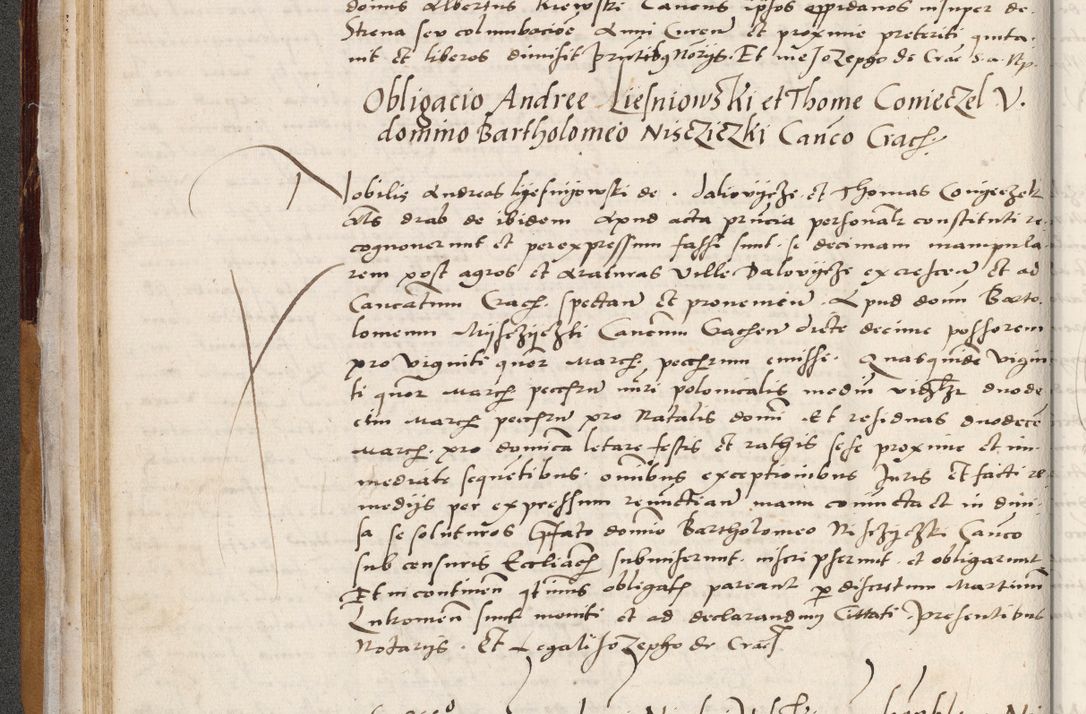 dominus Albertus Kiewski Canons ipsos oppidanos insuper de
Strena seu columbacione Anni Curren et proxime preteriti quita
vit et liberos dimisit prntibq Norijs. Et me Jozepho de Crac S. a. Np.
Obligacio Andree Liesniowski et Thome Conieczek V.
domino Bartholomeo Nisczіczki Canco Crach.
Nobilis Andreas lyesnyowski de . Dalovijcze et Thomas Conyeczek
als drab de ibidem Apud acta pncia personalr constituti re
cognoverunt et per expressum fassi sunt se decimam manipula
rem post agros et Araturas Ville Dalovijcze excrescen et ad
Cancatum Crach. spectan et provenien. Apud donm Barto
lomeum Nijsczyczki Canonm Crachen dicte decime possorem
pro viginti quor March. pecchrum emisse. Quasquide vigin
ti quor March pecchru nuri polonicalis medm videlzt duode
cim March pecchru pro Natalis domi Et residuas duodecem
March. pro domica letare festis et rathis sese proxime et im
mediate sequetibus. omibus exceptionibus Juris et facti re
medijs per expressum renuctian manu coniuncta et in divi
sa se soluturos Pfato domio Bartholomeo Nisczyczki Canco
sub censuris Eccliach submiserunt. inscripserunt. et obligarunt
Et in continen qtinus obligats pareant p discretum Martinum
Introment sunt moniti et ad declarandum Citati Presentibus
Notarijs. Et Legali Jozepho de Crac